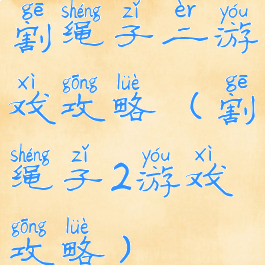 gē shéng zǐ èr yóu
割绳子二游
xì gōng lüè gē
戏攻略(割
shéng zǐ yóu xì
绳子2游戏
gōng lüè
攻略)